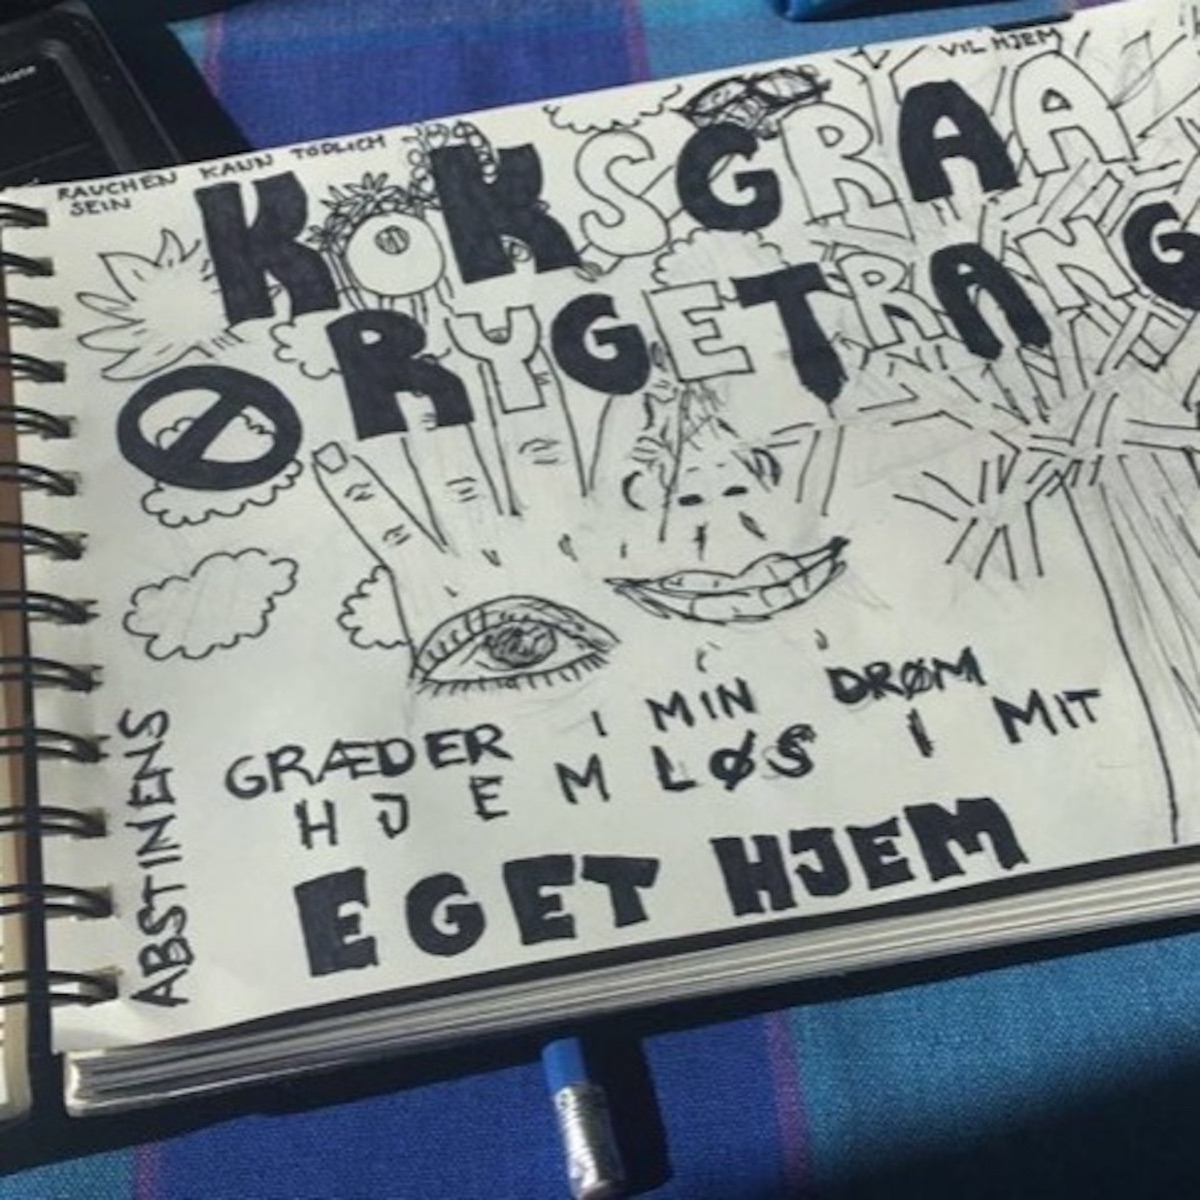 RAUCHEN KANN TÖDLICH
SEIN
VIL HJEM
KOKSGRAA
RYGETRANG
GRÆDER I MIN DRØM
HJEMLØS I MIT
EGET HJEM
ABSTINENS